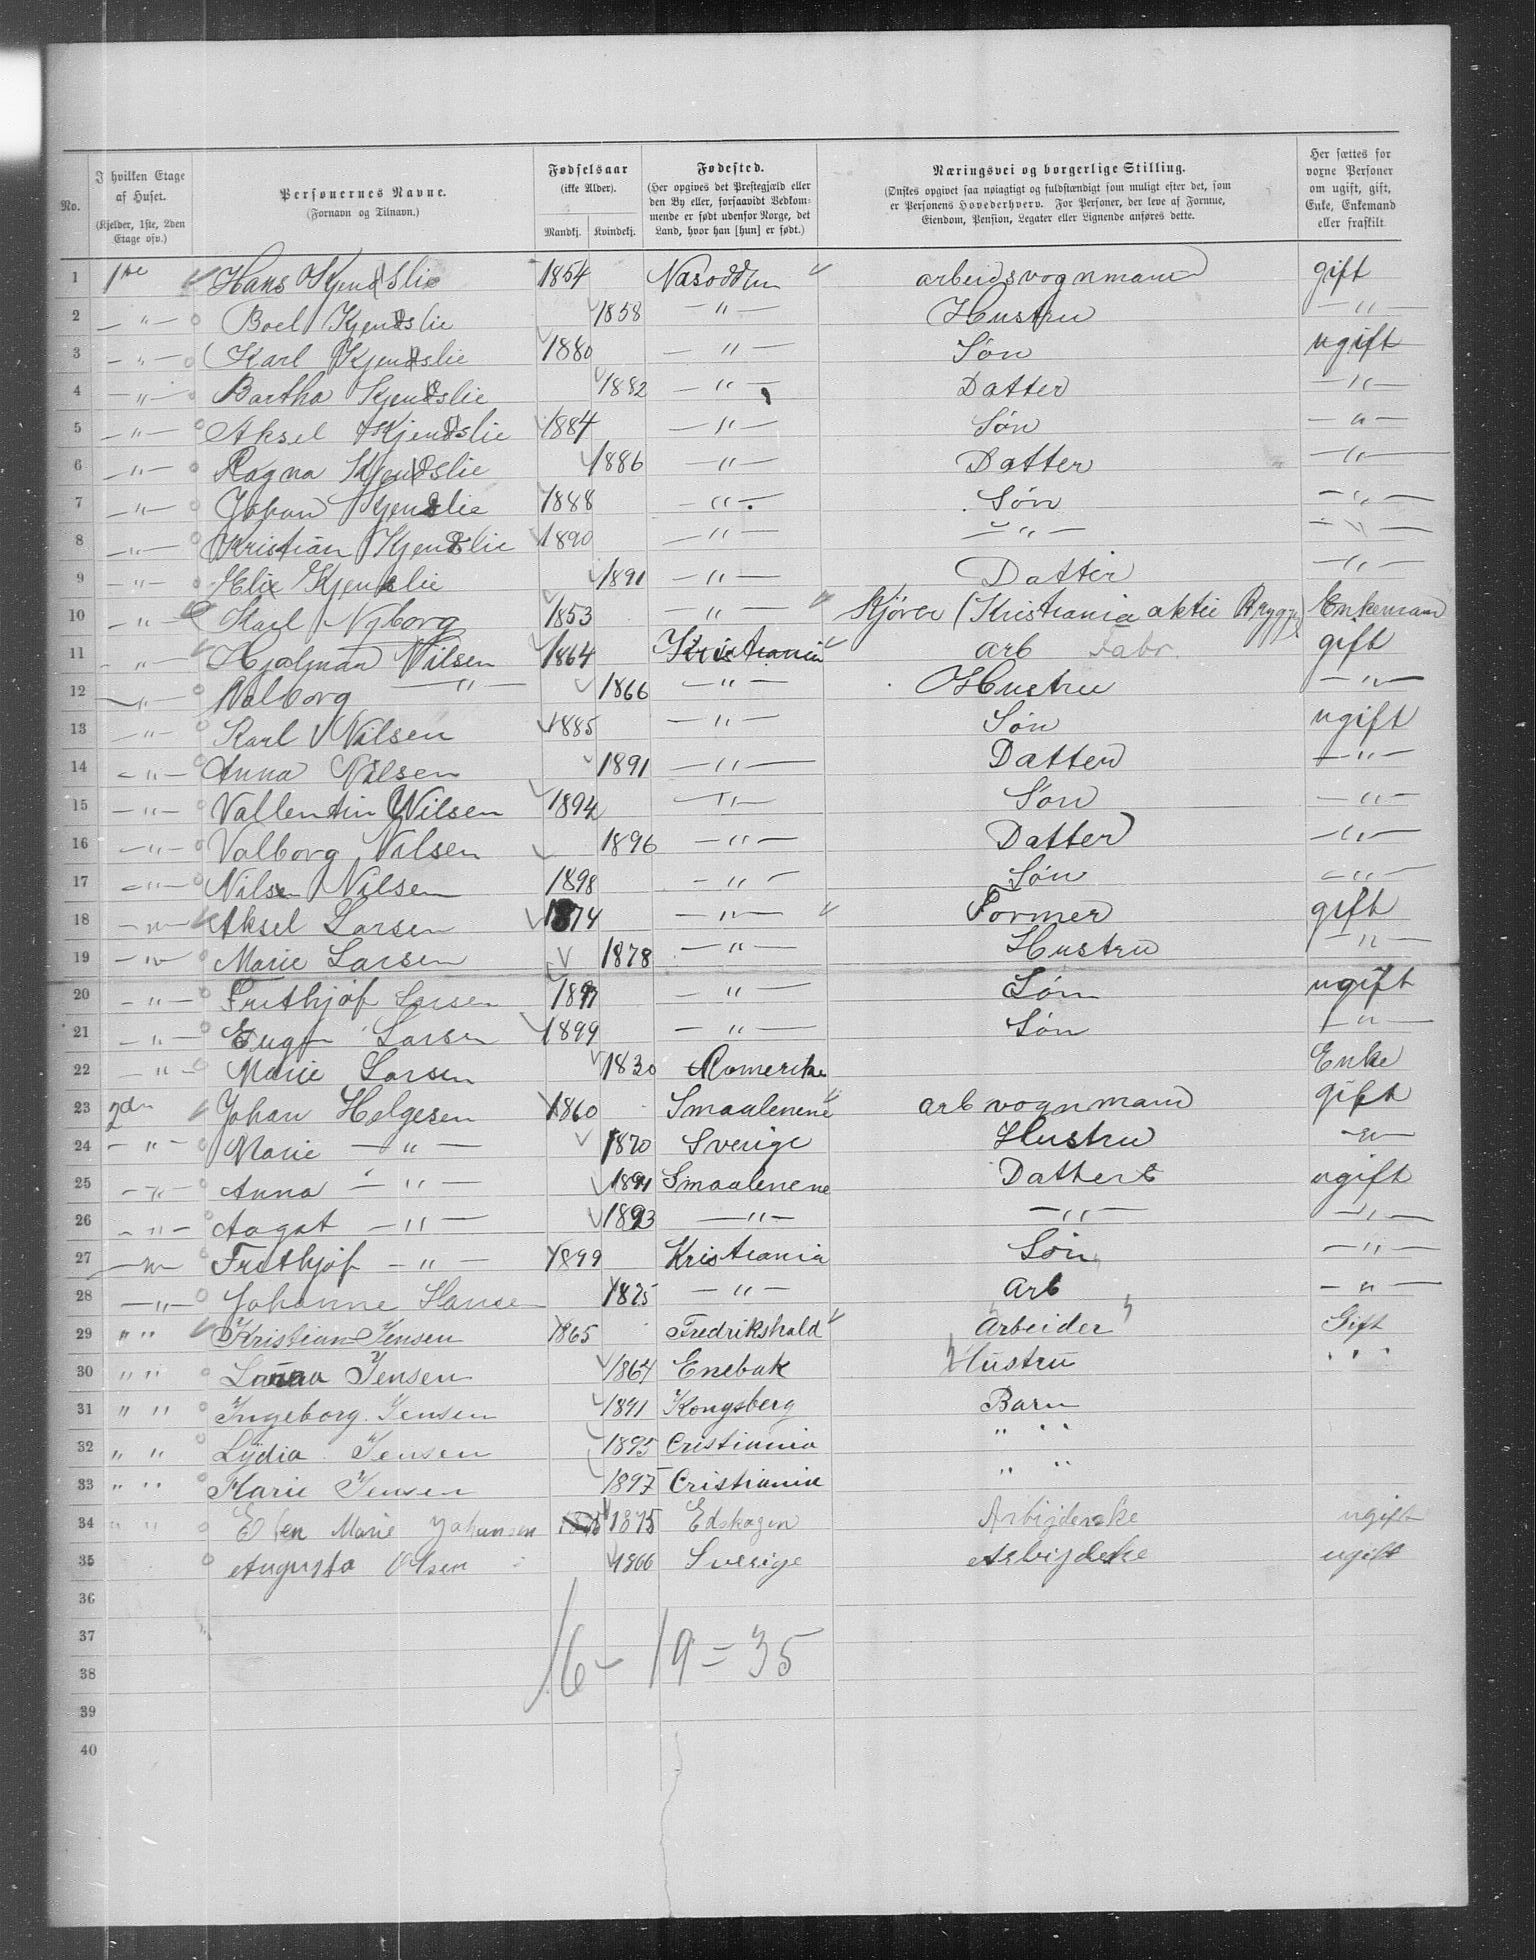 No.
I hvilken Etage af Huset. (Kjelder, 1ste, 2den Etage osv.)
Personernes Navne. (Fornavn og Tilnavn.)
Fødselsaar (ikke Alder). Mandkj. Kvindekj.
Fødested. (Her opgives det Prestegjæld eller den By eller, forsaavidt Vedkommende er født udenfor Norge, det Land, hvor han [hun] er født.)
Næringsvei og borgerlige Stilling. (Ønskes opgivet saa nøiagtigt og fuldstændigt som muligt efter det, som er Personens Hovederhverv. For Personer, der leve af Formue, Eiendom, Pension, Legater eller Lignende anføres dette.
Her sættes for voxne Personer om ugift, gift, Enke, Enkemand eller fraskilt.
1 1ste Hans Kjendslie 1854 Nasodden arbeidsvognmand gift
2 —"— Boel Kjendslie 1858 —"— Hustru —"—
3 —"— Karl Kjendslie 1880 —"— Søn ugift
4 —"— Bartha Kjendslie 1882 —"— Datter —"—
5 —"— Aksel Kjendslie 1884 —"— Søn —"—
6 —"— Ragna Kjendslie 1886 —"— Datter —"—
7 —"— Johan Kjenslie 1888 —"— Søn —"—
8 —"— Kristian Kjenslie 1890 —"— —"— —"—
9 —"— Elie Kjenslie 1891 —"— Datter —"—
10 —"— Karl Nyborg 1853 —"— Kjører (Kristiania aktie Brygge) Enkemand
11 —"— Hjalmar Nilsen 1864 Kristiania arb Fabr. gift
12 —"— Valborg —"— 1866 —"— Hustru —"—
13 —"— Karl Nilsen 1885 —"— Søn ugift
14 —"— Anna Nilsen 1891 —"— Datter —"—
15 —"— Vallentin Nilsen 1894 —"— Søn —"—
16 —"— Valborg Nilsen 1896 —"— Datter —"—
17 —"— Nilsen Nilsen 1898 —"— Søn —"—
18 —"— Aksel Larsen 1874 —"— Former gift
19 —"— Marie Larsen 1878 —"— Hustru —"—
20 —"— Frithjof Larsen 1897 —"— Søn ugift
21 —"— Eugen Larsen 1899 —"— Søn —"—
22 —"— Marie Larsen 1830 Romerike Enke
23 2den Johan Helgesen 1860 Smaalenene arb vognmand gift
24 —"— Marie —"— 1870 Sverige Hustru —"—
25 —"— Anna —"— 1891 Smaalenene Datter ugift
26 —"— Aagot —"— 1893 —"— —"— —"—
27 —"— Frithjof —"— 1899 Kristiania Søn —"—
28 —"— Johanne Hansen 1875 —"— Arb —"—
29 " " Kristian Jensen 1865 Fredrikshald Arbeider Gift
30 " " Jensen 1864 Enebak Hustru " "
31 " " Ingeborg Jensen 1891 Kongsberg Barn
32 " " Lydia Jensen 1895 Cristiania " "
33 " " Karie Jensen 1897 Cristiania " "
34 " " Ellen Marie Johansen 1875 Edskogen Arbijderske ugift
35 Augusta Olsen 1866 Sverige Arbijdeske ugift
36
37
16 - 19 = 35
38
39
40